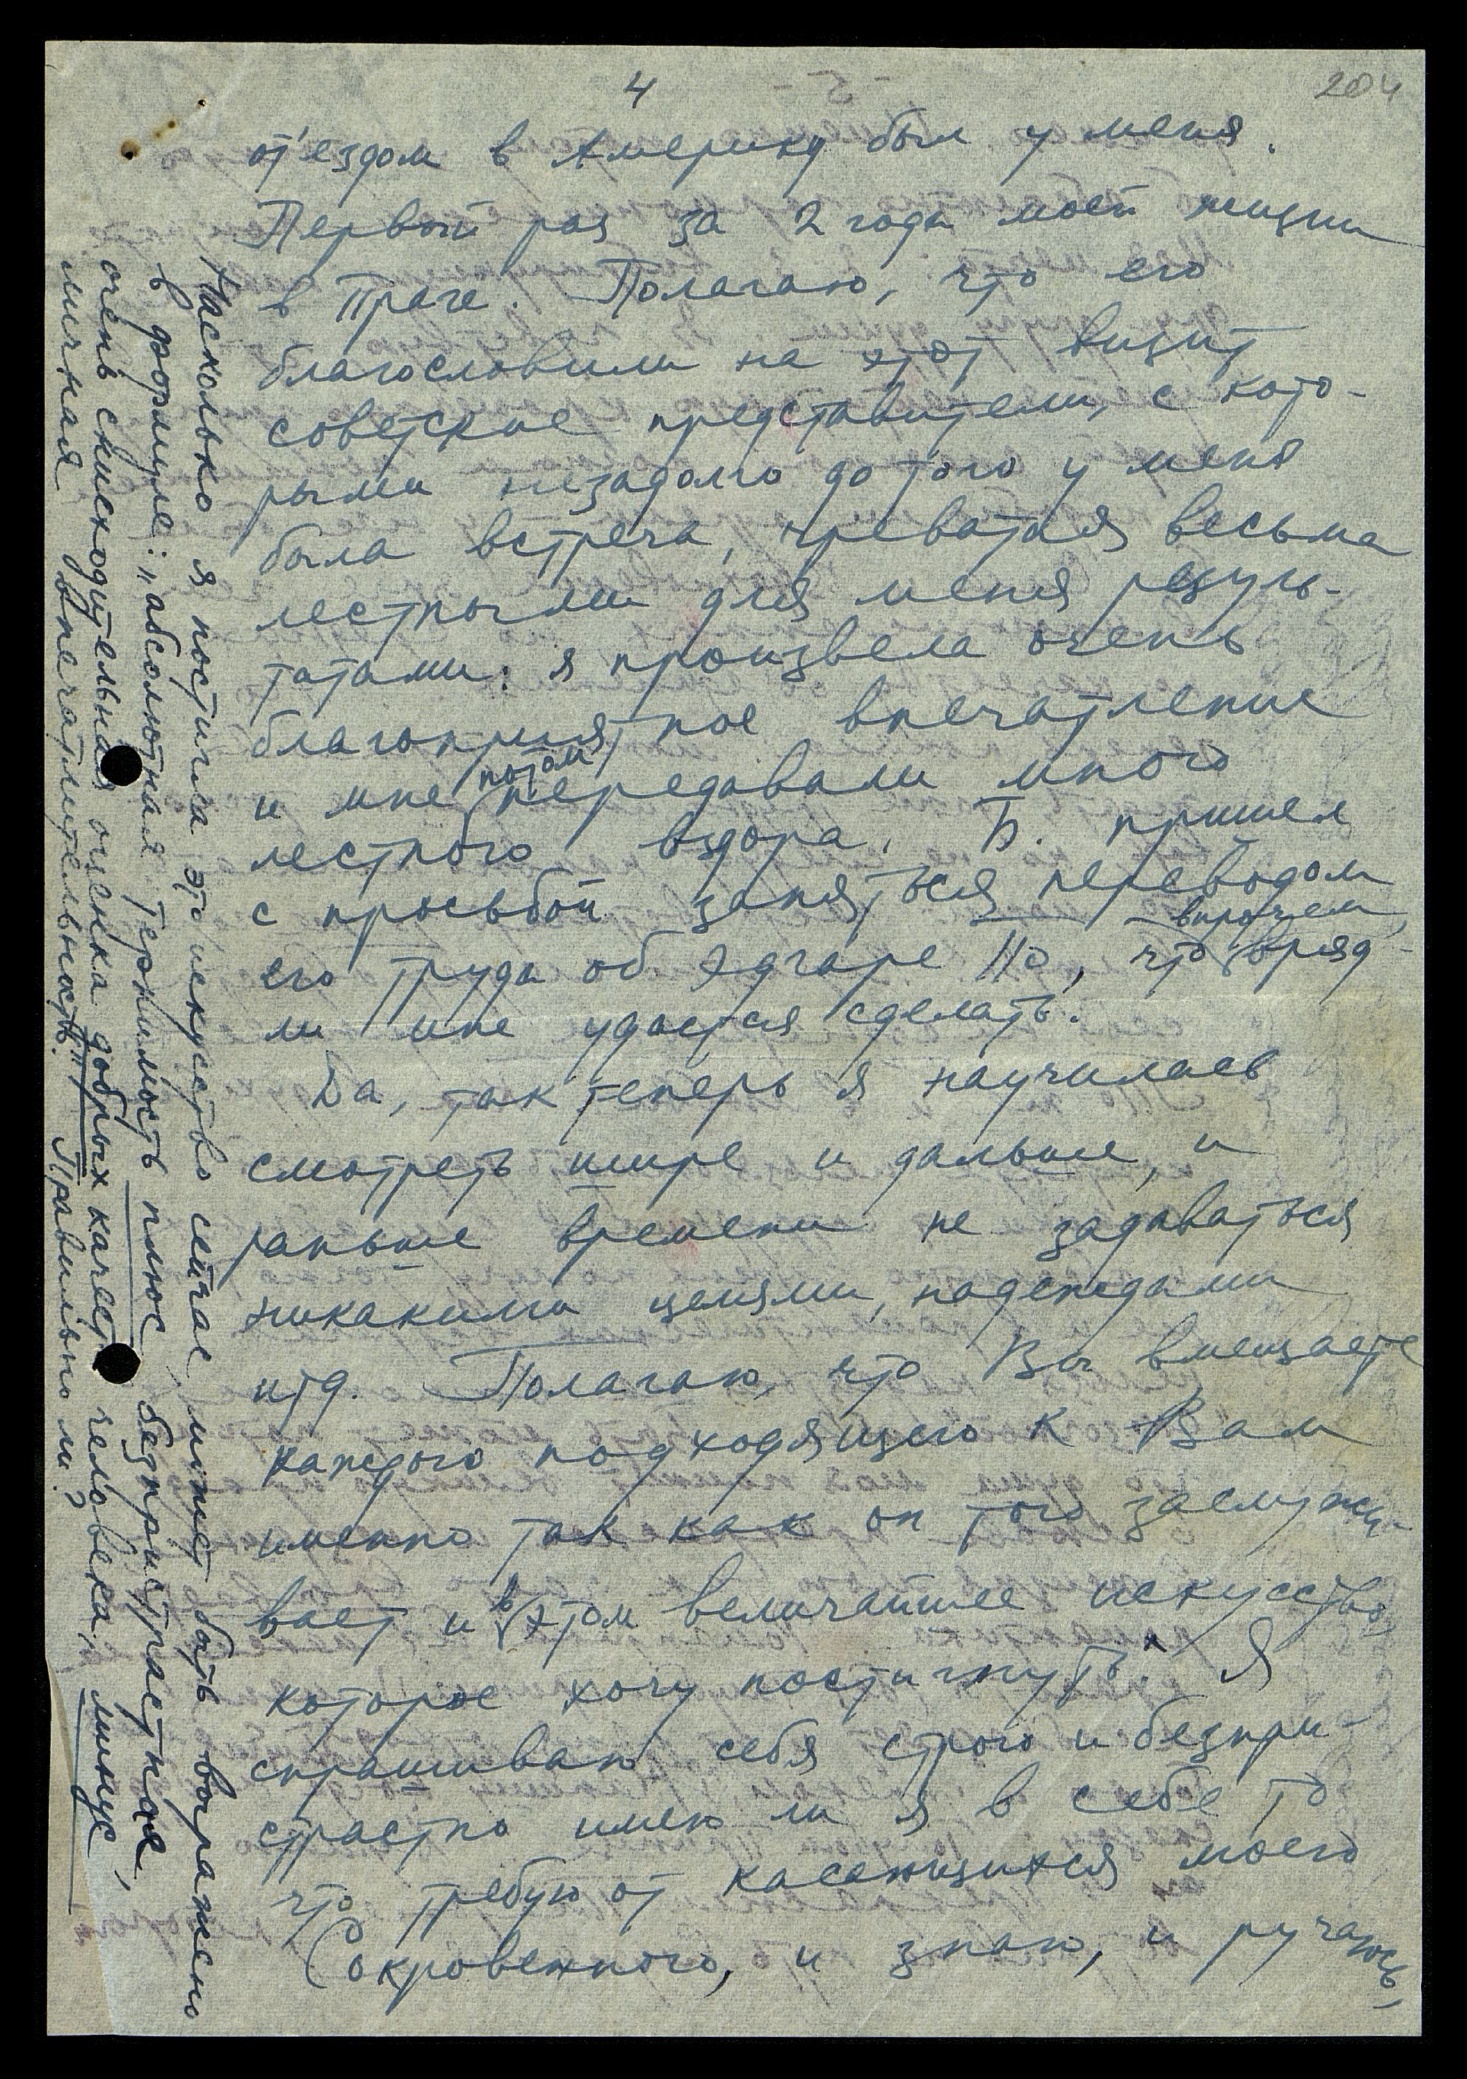 4
204
от'ездом в Америку был у меня.
Первый раз за 2 года моей жизни
в Праге. Полагаю, что его
благословили на этот визит
советские представители, с кото-
рыми незадолго до того у меня
была встреча, чреватая весьма
лестными для меня резуль-
татами: я произвела очень
благоприятное впечатление
и мне потом передавали много
лестного вздора. Б. пришел
с просьбой заняться переводом
его труда об Эдгаре По, что, впрочем, вряд-
ли мне удастся сделать.
Да, так теперь я научилась
смотреть шире и дальше, и
раньше времени не задаваться
никакими целями, надеждами
итд. Полагаю, что Вы вмещаете
каждого подходящего к Вам
именно так как он того заслужи-
вает и в этом величайшее искусство,
которое хочу постигнуть.* Я
спрашиваю себя строго и безпри-
страстно имею ли я в себе то
что требую от касающихся моего
Сокровенного, и знаю, и ручаюсь,
Насколько я постигла это искусство сейчас, может быть выражено
в формуле: "абсолютная терпимость плюс безпристрастная,
очень снисходительная оценка добрых качеств человека, минус
личная впечатлительность." Правильно ли?